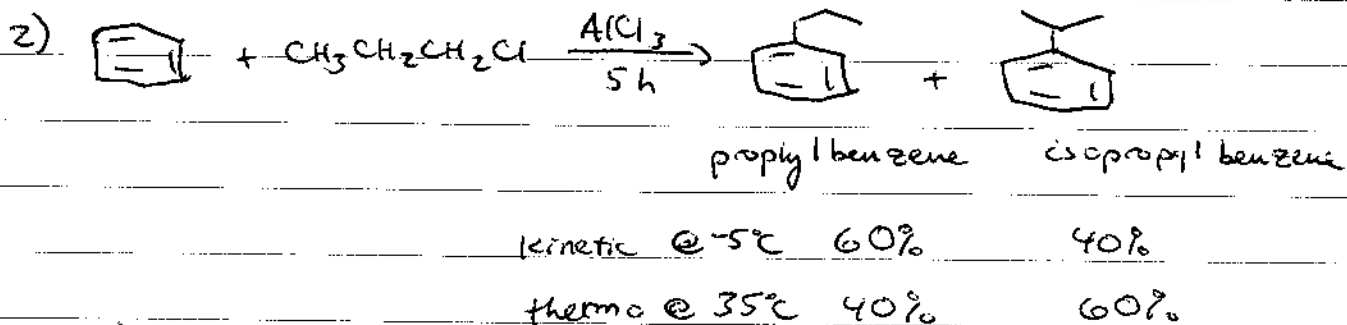 2) + CH3CH2CH2Cl AlCl3 5h +
proplyl benzene isopropyl benzene
kinetic @ -5°C 60% 40%
thermo @ 35°C 40% 60%